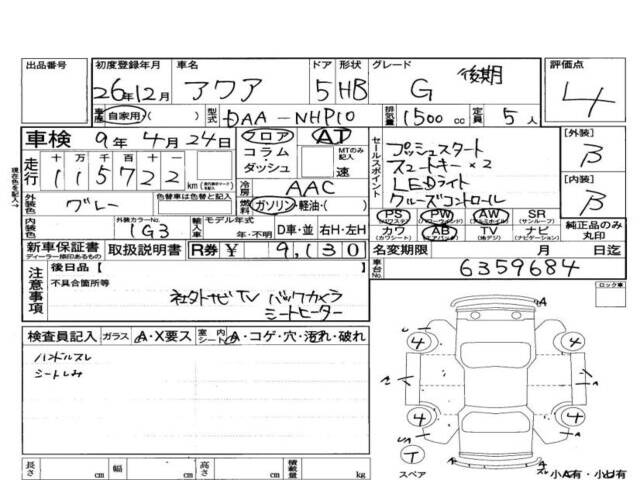 出品番号 初度登録年月 車名 ドア 形状 グレード 評価点
26年12月 アクア 5 HB G 後期 4
車歴 自家用・( ) 型式 DAA-NHP10 排気量 1500 cc 定員 5人
車検 9年4月24日 フロア AT セールスポイント プッシュスタート [外装] B
走行 十 万 千 百 十 一 コラム・ダッシュ MTのみ記入 速 スマートキー×2
115722 km 冷房 AAC LEDライト [内装] B
外装色 グレー 色替車は色替と記入 燃料 ガソリン・軽油・( ) クルーズコントロール
PS (パワステ) PW (パワーウィンド) AW (アルミホイル) SR (サンルーフ) 純正品のみ丸印
内装色 外装カラーNo. 1G3 輸入車 モデル年式 年・不明 D車・並 右H・左H カワ (カワシート) AB (エアバッグ) TV (純デジ) ナビ (ナビゲーション)
新車保証書 ディーラー捺印あるもの 取扱説明書 R券 ¥ 9,130 名変期限 月 日迄
注意事項 後日品【 】 車台No. 6359684
不具合箇所等 ロック車
社外ナビ TV バックカメラ
シートヒーター
検査員記入 ガラス A・X要ス 室内シート A・コゲ・穴・汚れ・破れ
ハンドルスレ
シートしみ
A
4 4
A
4 4
T
スペア 小A有・小U有
長さ cm 幅 cm 高さ cm 積載量 kg
現在色を記入→